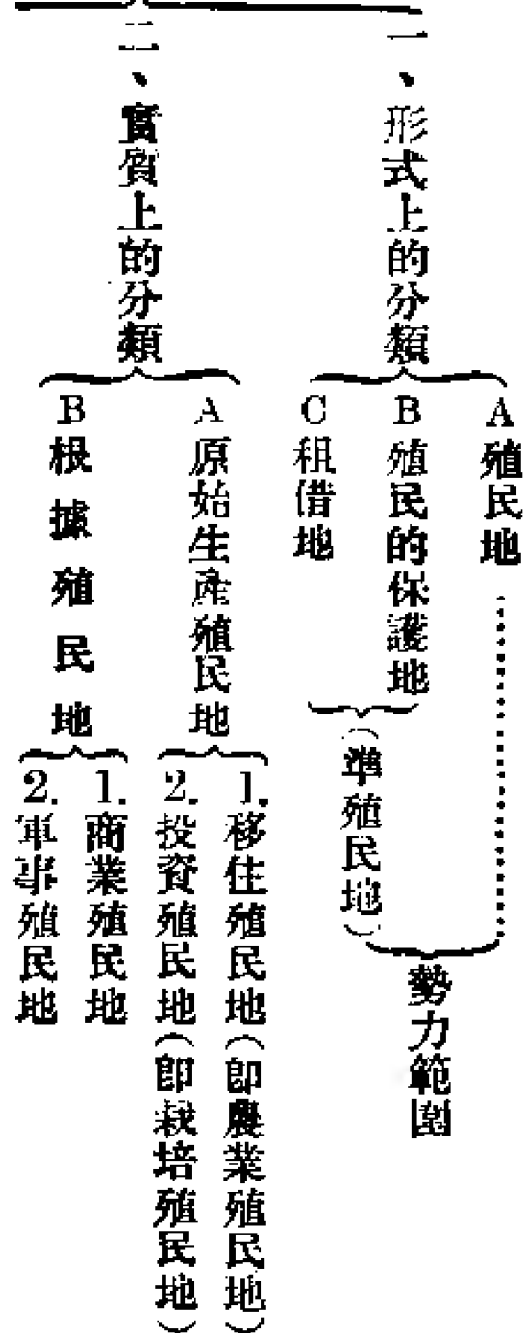 一、形式上的分類
A 殖民地
B 殖民的保護地
C 租借地
(準殖民地)
勢力範圍
二、實質上的分類
A 原始生產殖民地
1. 移住殖民地(即農業殖民地)
2. 投資殖民地(即栽培殖民地)
B 根據殖民地
1. 商業殖民地
2. 軍事殖民地